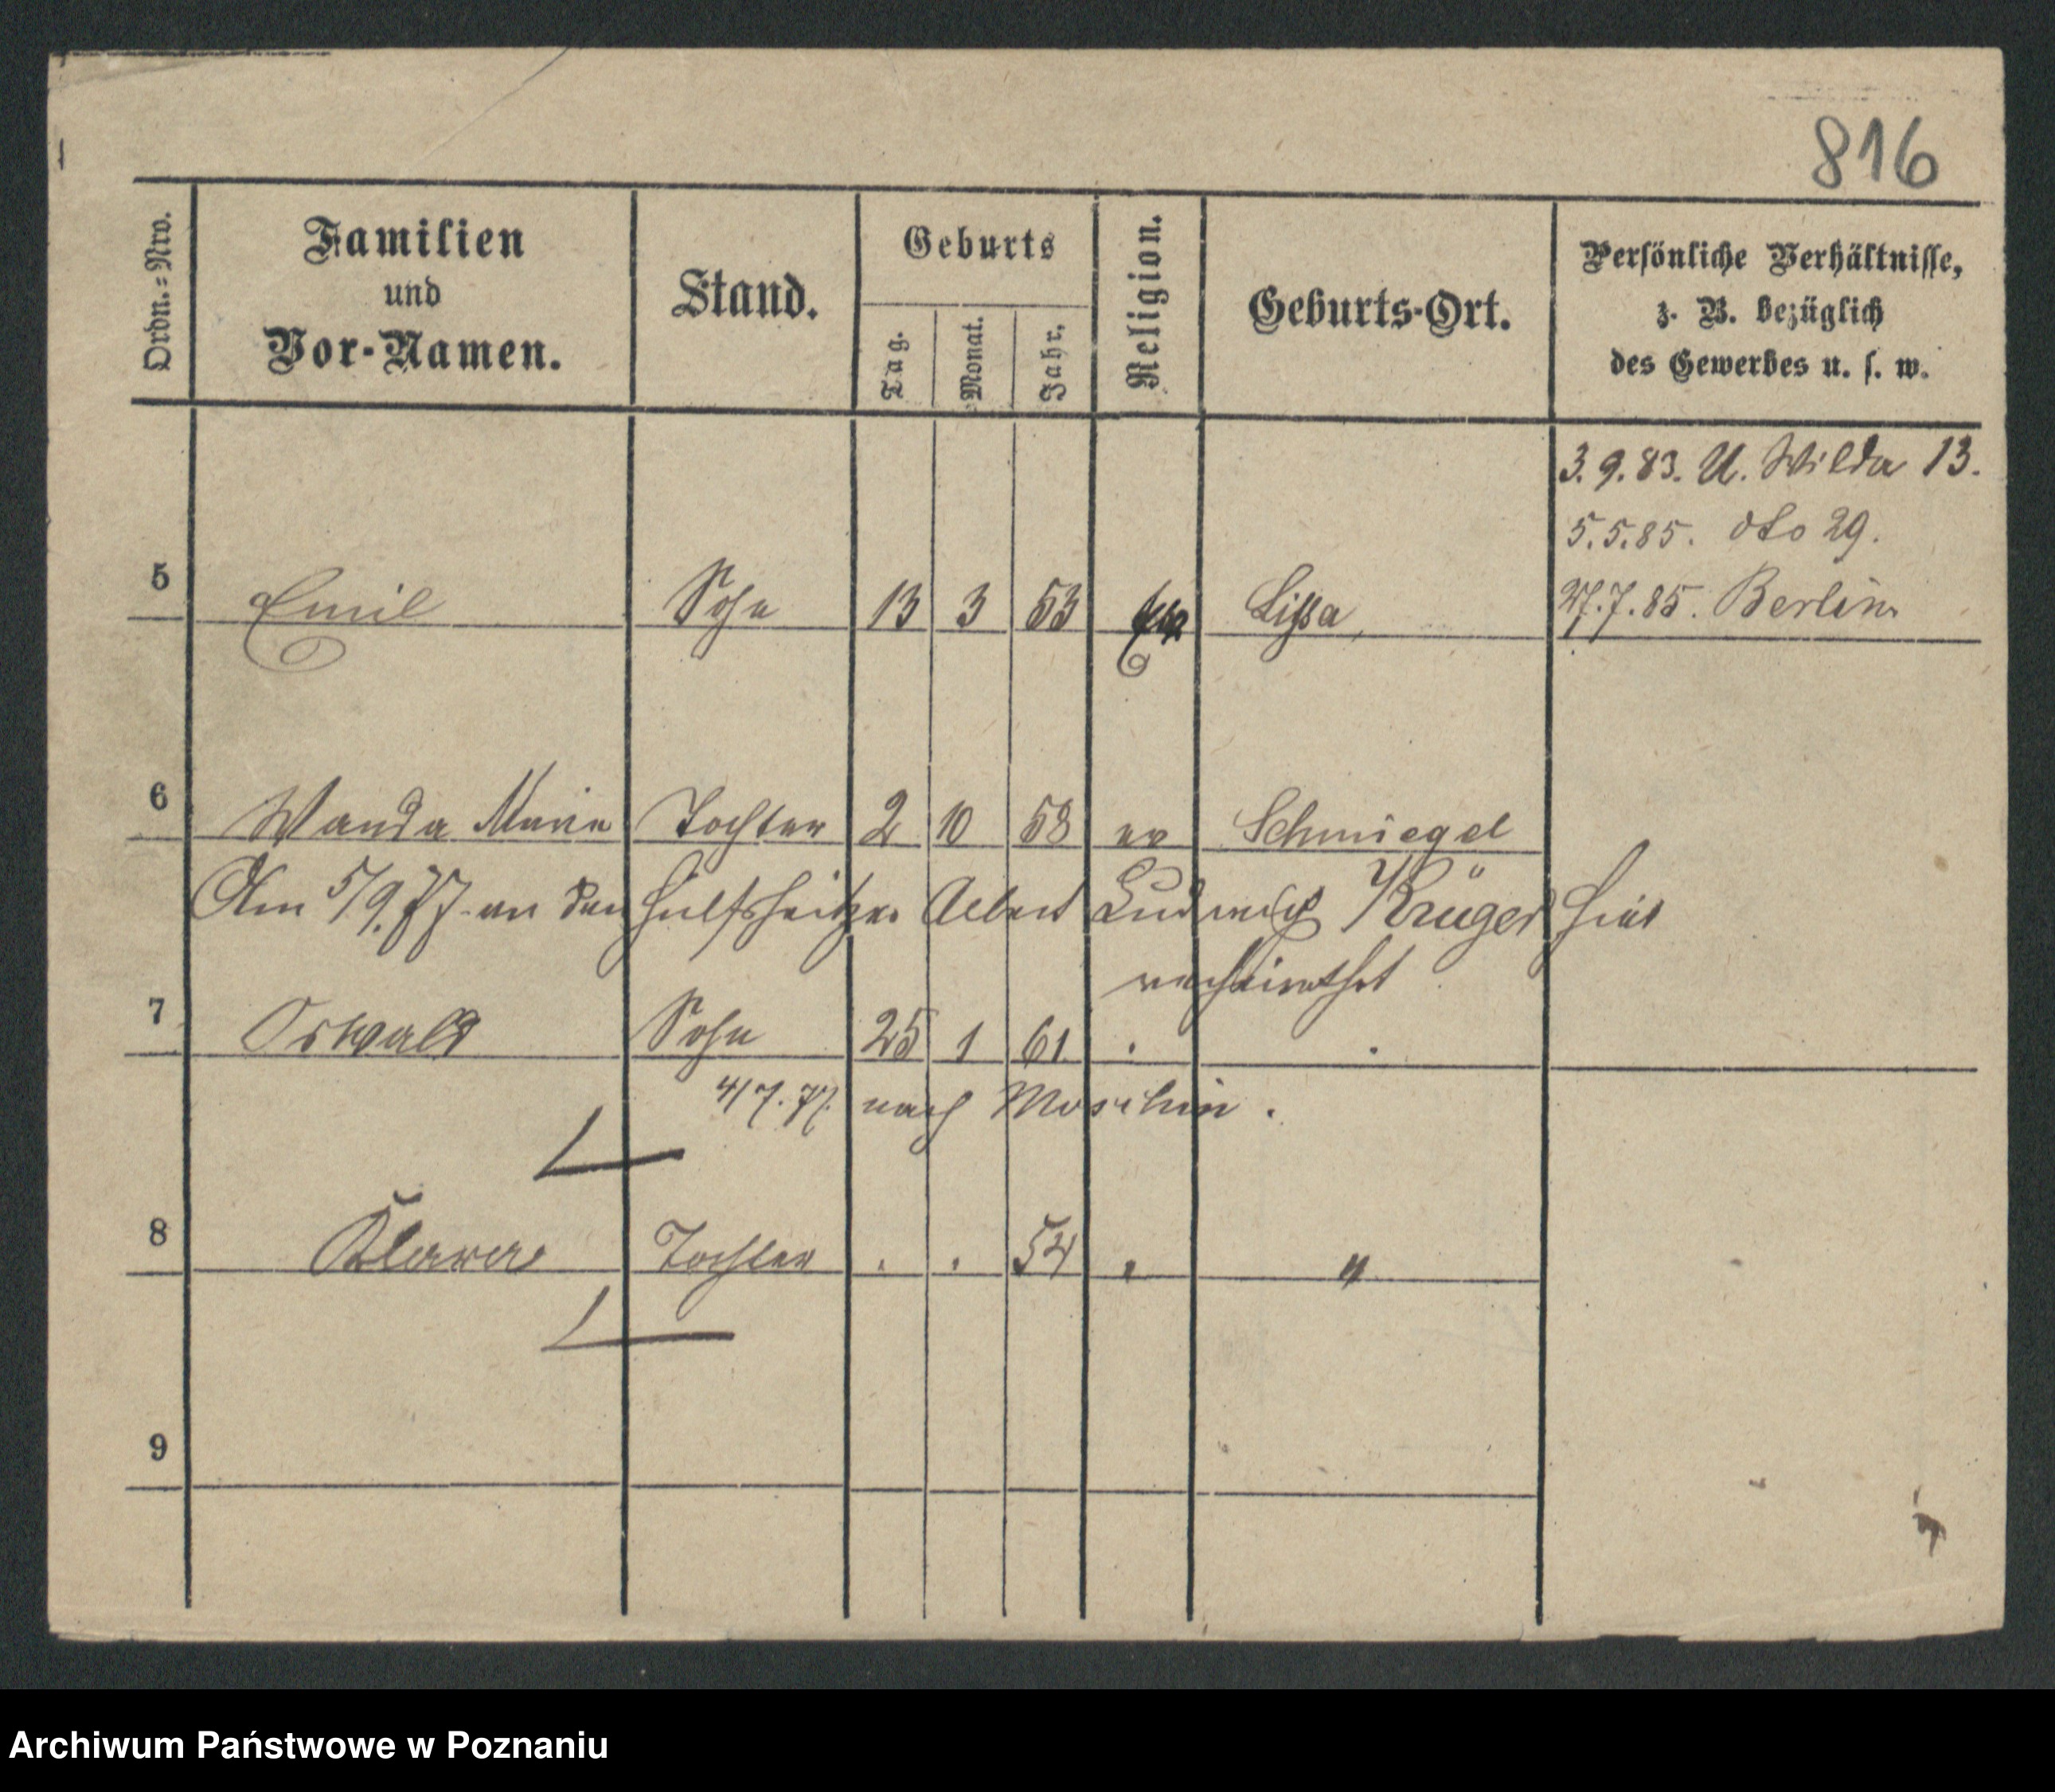 816
Ordn.=Nro.
Familien
und
Vor-Namen.
Stand.
Geburts
Tag.
Monat.
Jahr.
Religion.
Geburts-Ort.
Persönliche Verhältnisse,
z. B. bezüglich
des Gewerbes u. s. w.
3.9.83. U. Wilda 13.
5.5.85. dto 29.
27.7.85. Berlin
5 Emil Sohn 13 3 53 Lissa
6 Wanda Marie Tochter 2 10 58 ev Schmiegel
Am 5/9.77 an den Hülfsheitzer Albert Ludwig Krüger hier
verheirathet
7 Oswald Sohn 25 1 61 . .
4/7.77. nach Moschin.
8 Klara Tochter . . 54 " "
9
Archiwum Państwowe w Poznaniu